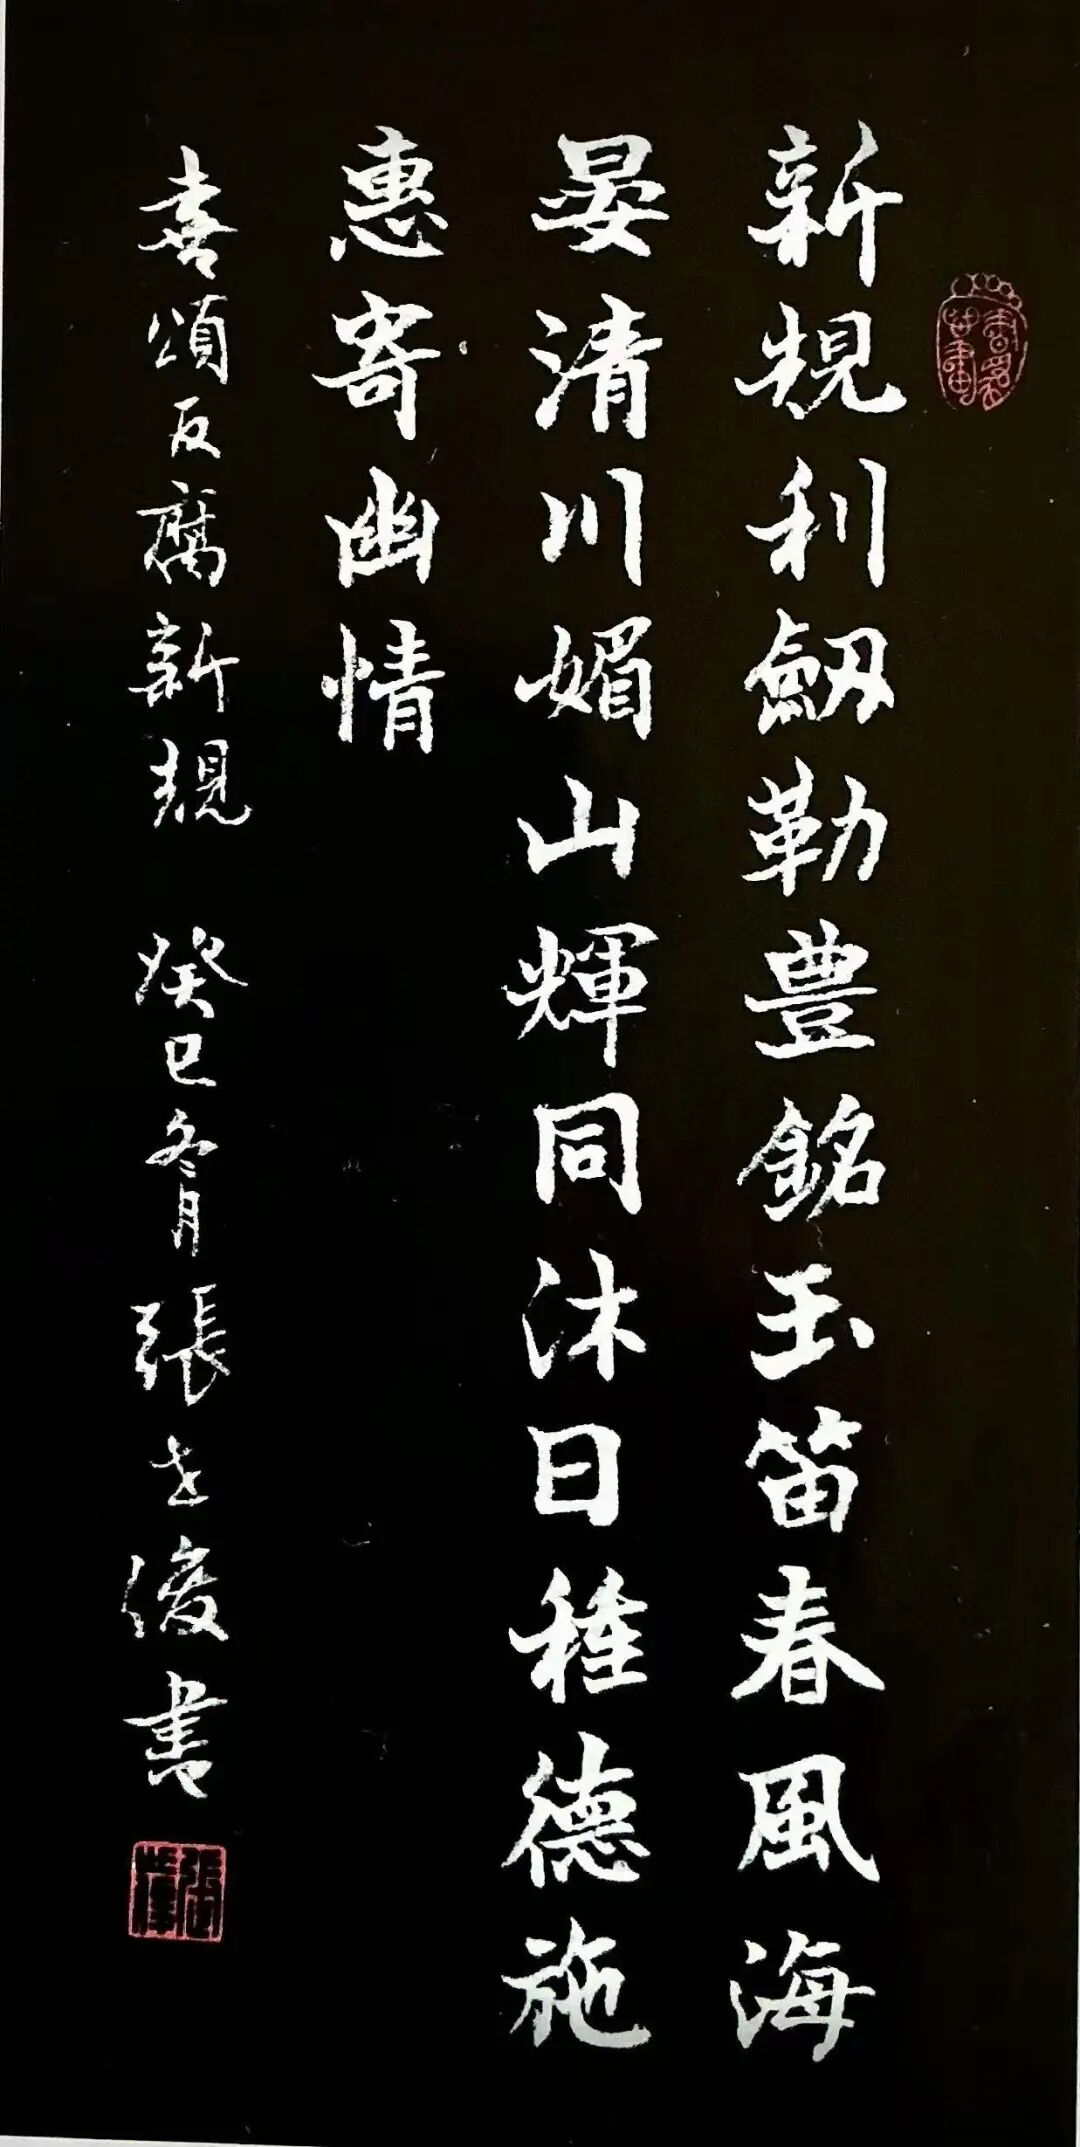 新規利劒勒豊銘玉笛春風海
晏清川媚山輝同沐日種德施
惠寄幽情
喜頌反腐新規 癸巳冬月張世俊書